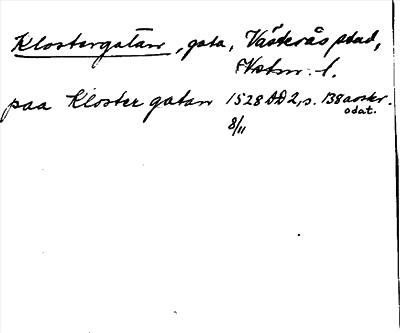 Klostergatan, gata, Västerås stad,
Vstm. l.
paa Kloster gatan 1528 DD 2, s. 138 avskr.
odat.
8/11